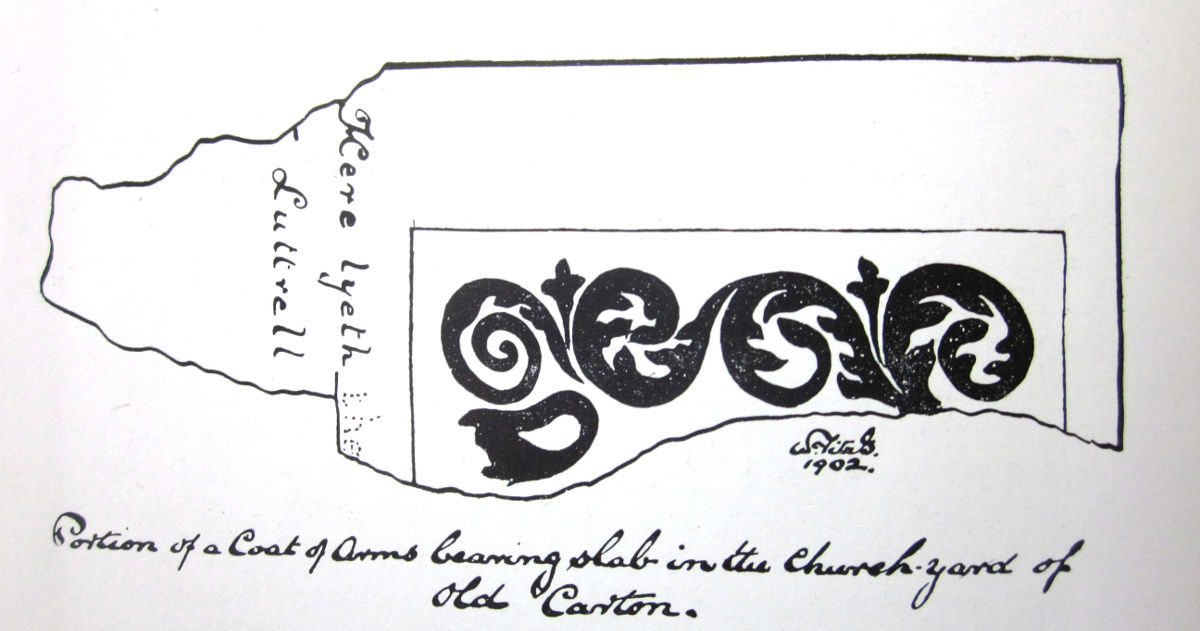 Here lyeth the
Luttrell
W. FitzG.
1902.
Portion of a Coat of Arms bearing slab in the Church-yard of
Old Carton.